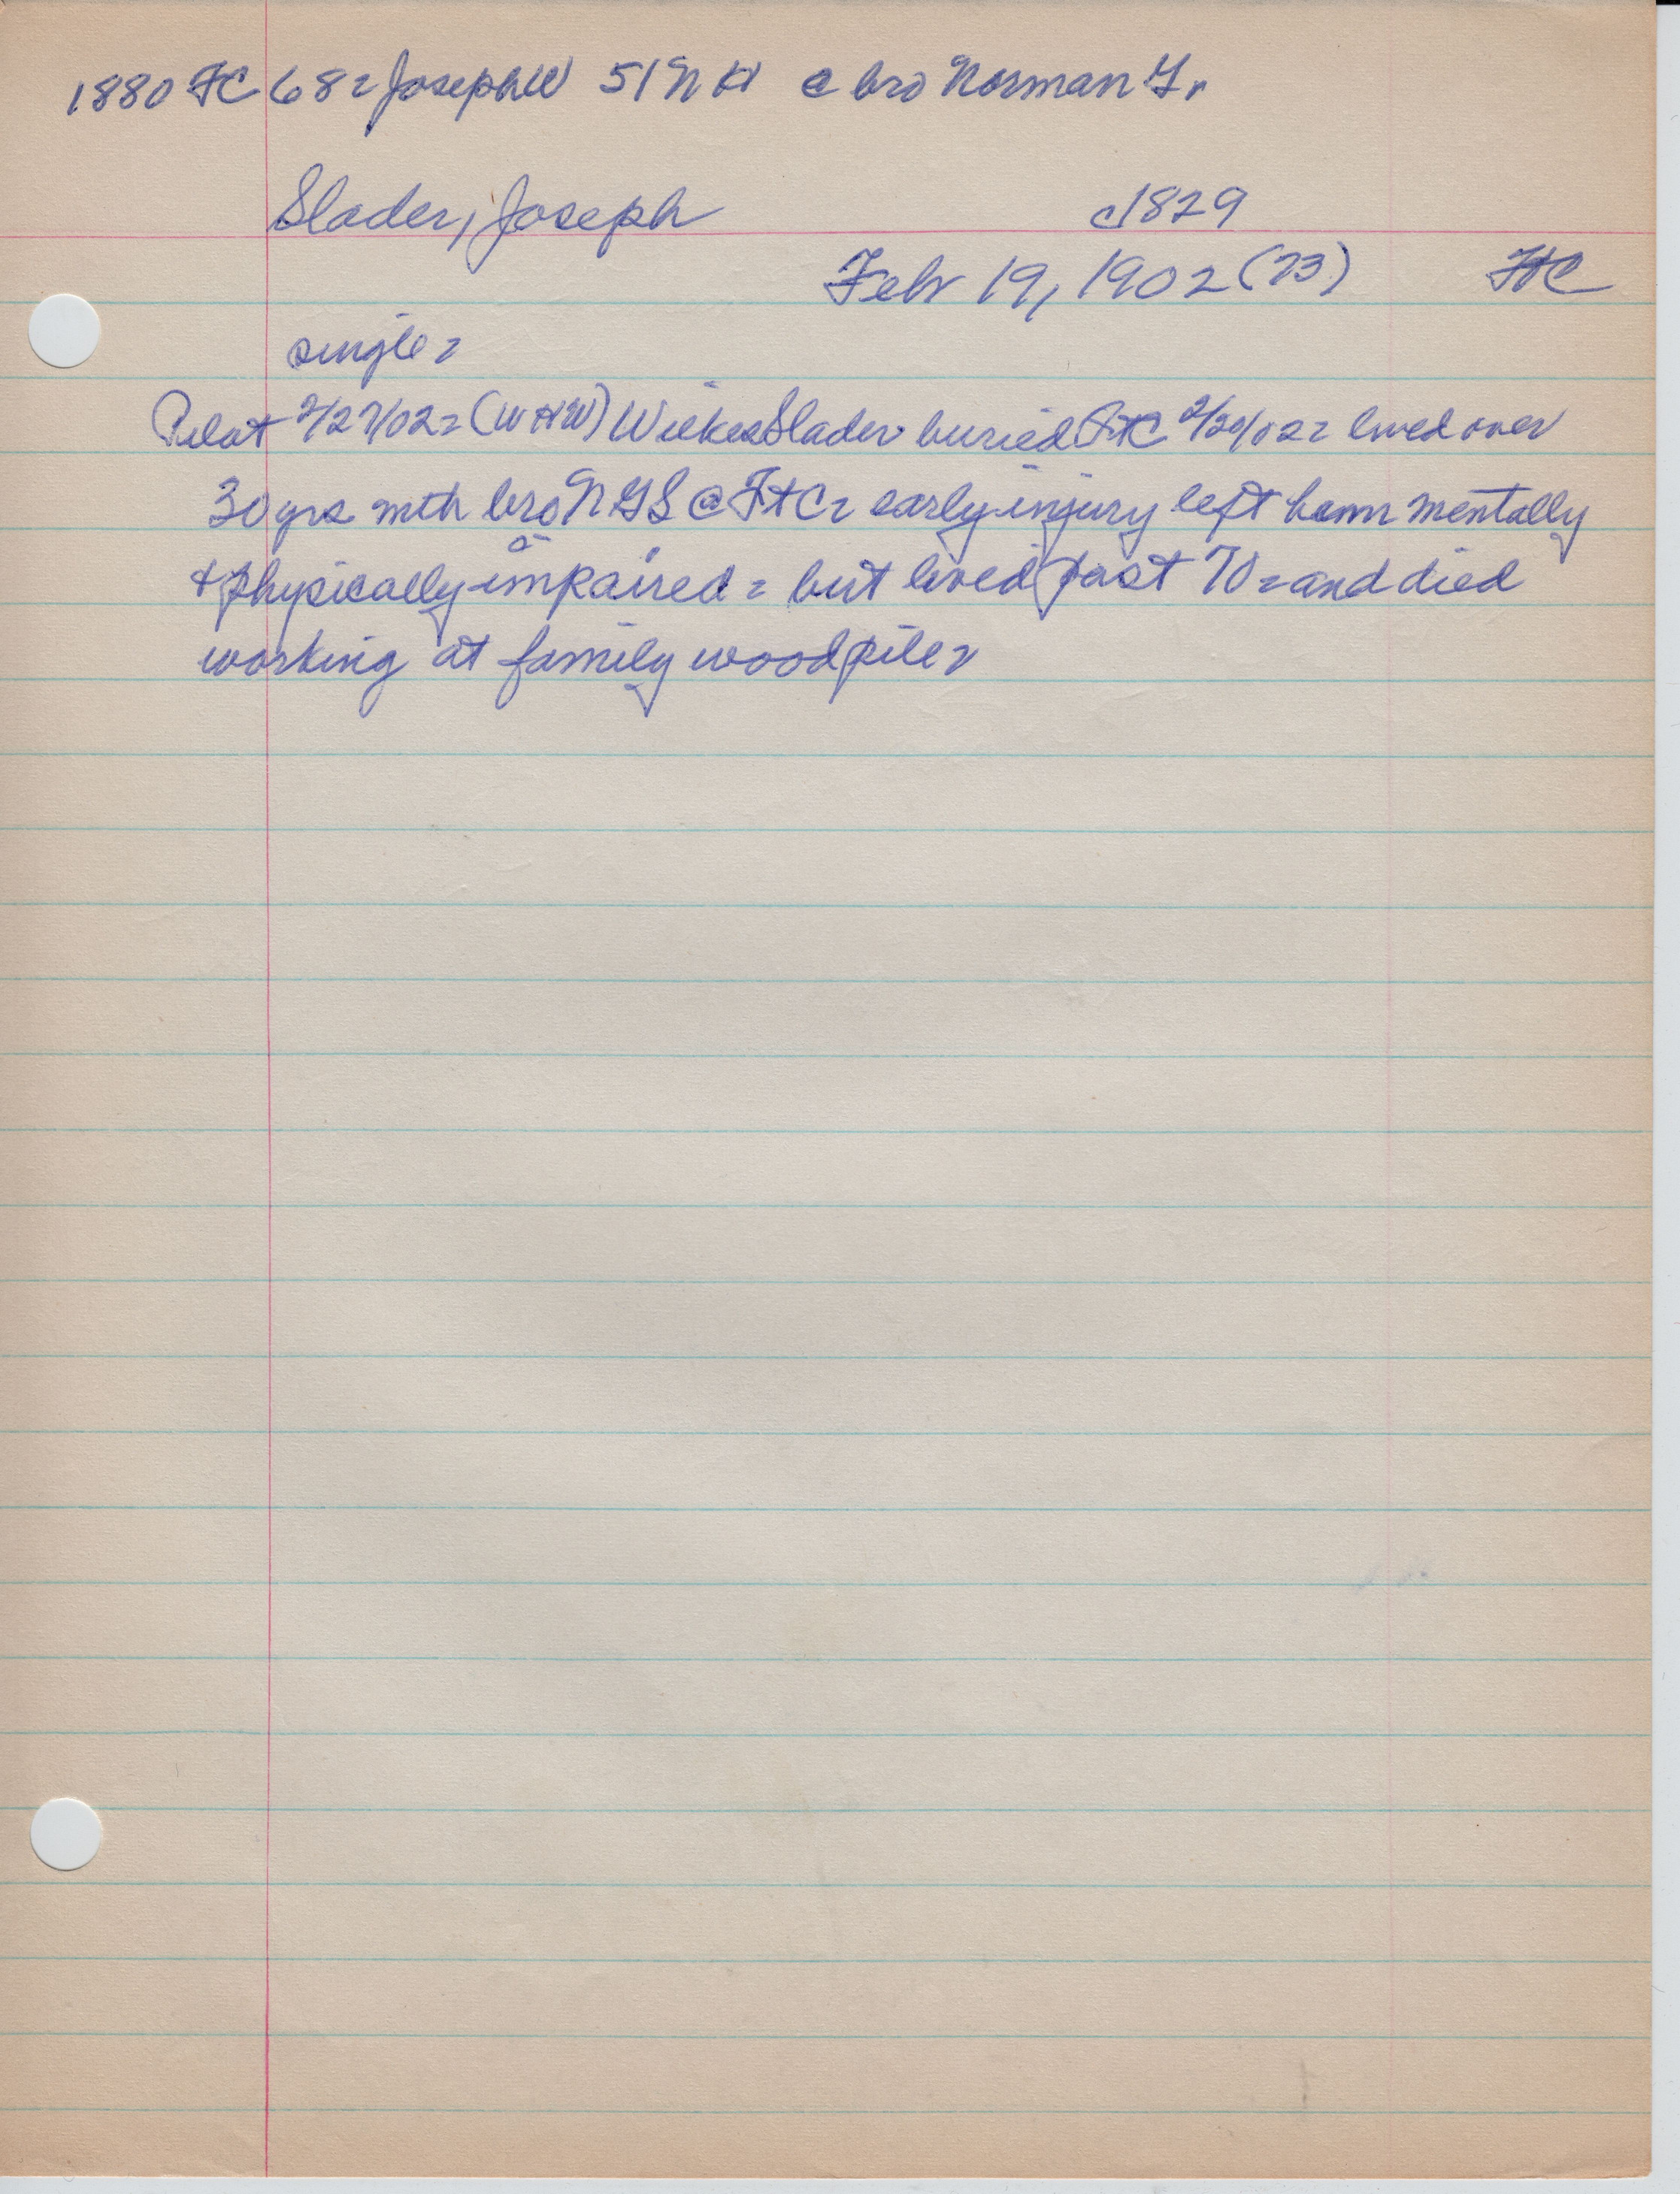 1880 FC 68= Joseph W 51 NH c bro Norman G.
Slader, Joseph c1829
Feb 19, 1902 (73) FtC
single=
Pilot 2/27/02= (WHW) Wilkes Slader buried FtC 2/20/02= lived over
30 yrs with bro NGS @ FtC= early injury left him mentally
& physically impaired= but lived past 70= and died
working at family woodpile=